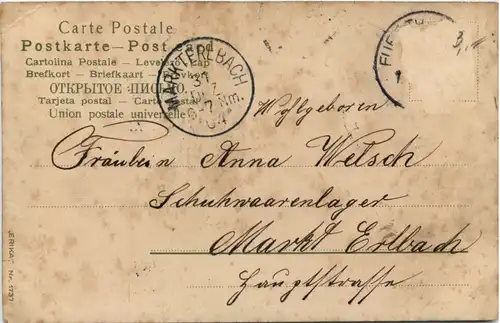 Carte Postale
Postkarte — Post card
Cartolina Postale —
Brefkort — Briefkaart —
ОТКРЫТОЕ ПИСЬМО.
Tarjeta postal — Carta postal
Union postale universelle
MARKT ERLBACH
31
04
Nm.
FUERTH
1
3,
Wohlgeboren
Fräulein Anna Welsch
Schuhwaarenlager
Markt Erlbach
Hauptstrasse
ERIKA Nr. 1737